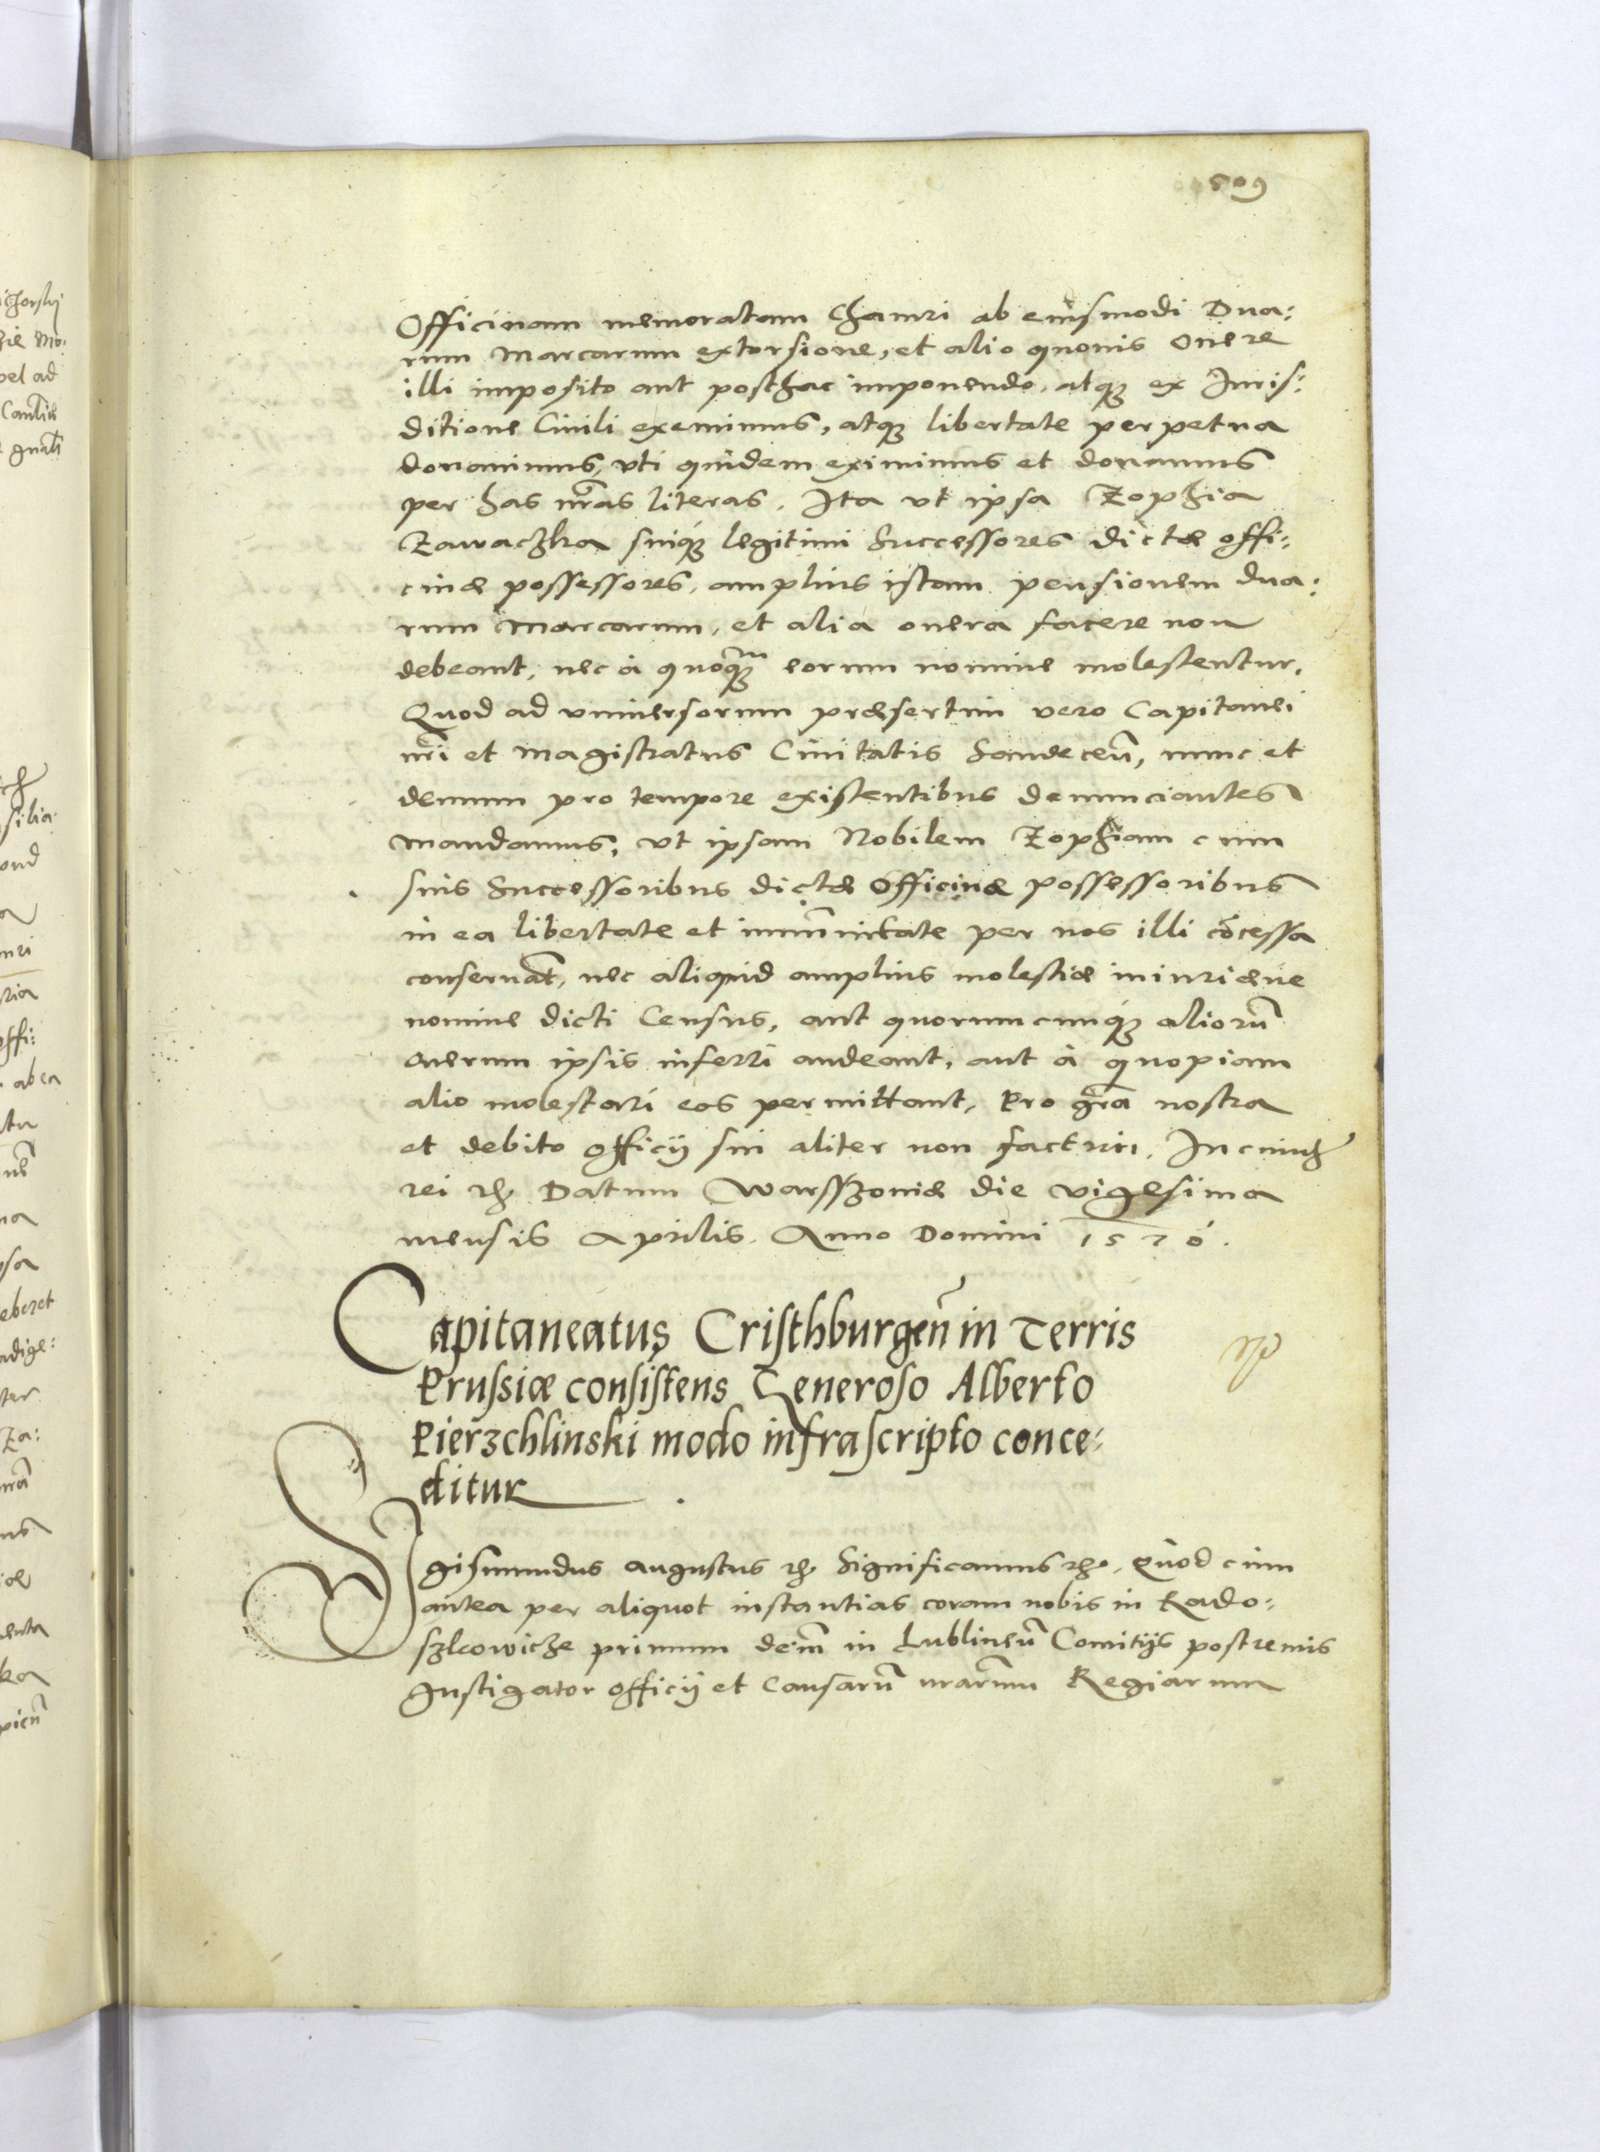 509
Officinam memoratam Chamri ab eiusmodi Dua:
rum Marcarum extorsione, et alio quouis onere
illi imposito aut posthac imponendo, atq₃ ex Iuris:
ditione Ciuili exemimus, atq₃ libertate perpetua
donauimus, vti quidem eximimus et donamus
per has nr̄as literas. Ita vt ipsa Zophia
Zawaczka suiq₃ legitimi Successores dictæ offi:
cinæ possessores, amplius istam pensionem dua:
rum Marcarum, et alia onera facere non
debeant, nec à quoq₃m eorum nomine molestentur.
Quod ad vniuersorum præsertim vero Capitanei
nr̄i et Magistratus Ciuitatis Sandeceñ, nunc et
demum pro tempore existentibus denunciantes
mandamus, vt ipsam Nobilem Zophiam cum
suis Successoribus dictæ Officinæ possessoribus
in ea libertate et immūnitate per nos illi cōcessa
conseruāt, nec aliquid amplius molestiæ iniuriæue
nomine dicti Census, aut quorumcunq₃ aliorū
onerum ipsis inferri audeant, aut à quopiam
alio molestari eos permittant, Pro gr̄a nostra
et debito officij sui aliter non facturi. In cuius
rei etc. Datum Warsszouiæ die vigesima
mensis Aprilis. Anno Domini 1570.
Capitaneatus Cristhburgeñ in Terris
Prussiæ consistens Generoso Alberto
Pierzchlinski modo infrascripto conce:
ditur
Sigismundus Augustus etc. Significamus etc. Quod cum
antea per aliquot instantias coram nobis in Rado:
szkowicze primum dein̄ in Lublineñ Comitijs postremis
Instigator officij et Causarū nrarūm Regiarum